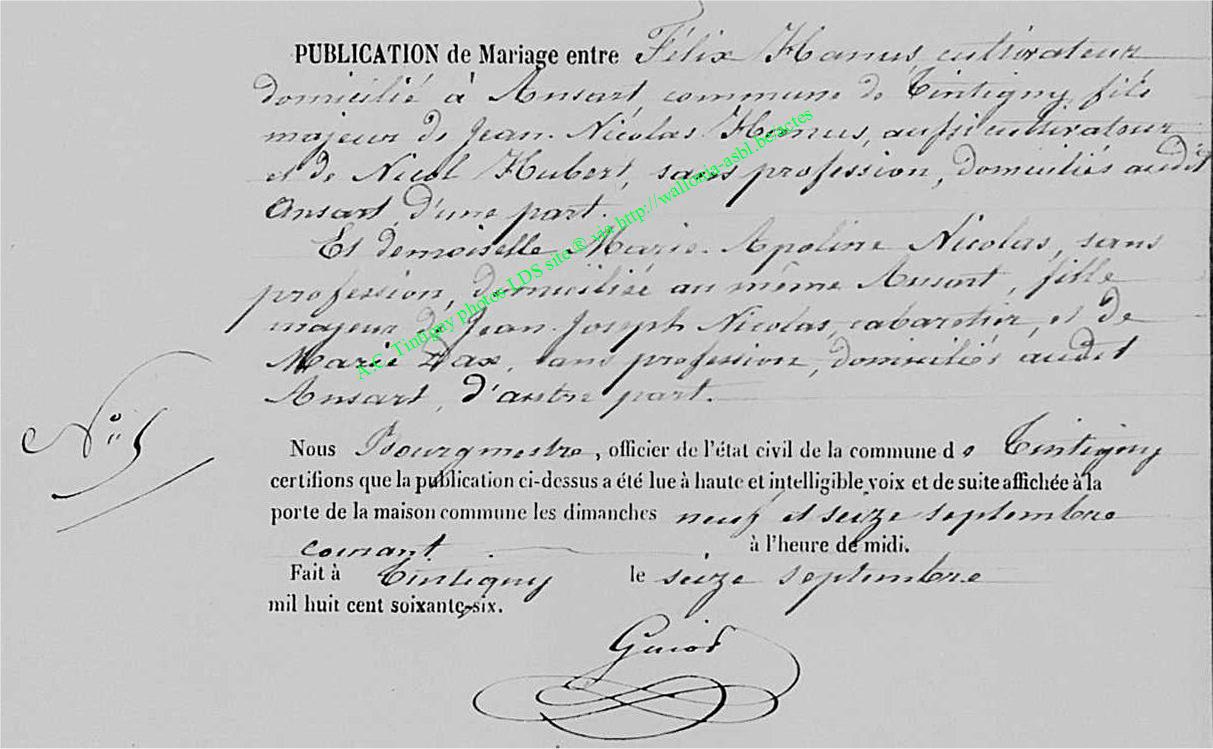 PUBLICATION de Mariage entre Félix Hanus, cultivateur
domicilié à Ansart, commune de Tintigny, fils
majeur de Jean-Nicolas Hanus, aussi cultivateur
et de Nicol Hubert, sans profession, domiciliés audit
Ansart, d'une part.
Et demoiselle Marie-Apoline Nicolas, sans
profession, domiciliée au même Ansart, fille
majeur de Jean-Joseph Nicolas, cabaretier, et de
Marie Dax, sans profession, domiciliés audit
Ansart, d'autre part.
N° 5
Nous Bourgmestre, officier de l'état civil de la commune de Tintigny
certifions que la publication ci-dessus a été lue à haute et intelligible voix et de suite affichée à la
porte de la maison commune les dimanches neuf et seize septembre
courant à l'heure de midi.
Fait à Tintigny le seize septembre
mil huit cent soixante-six.
Guiot
A.C. Tintigny photos LDS site ® via http://wallonia-asbl.be/actes